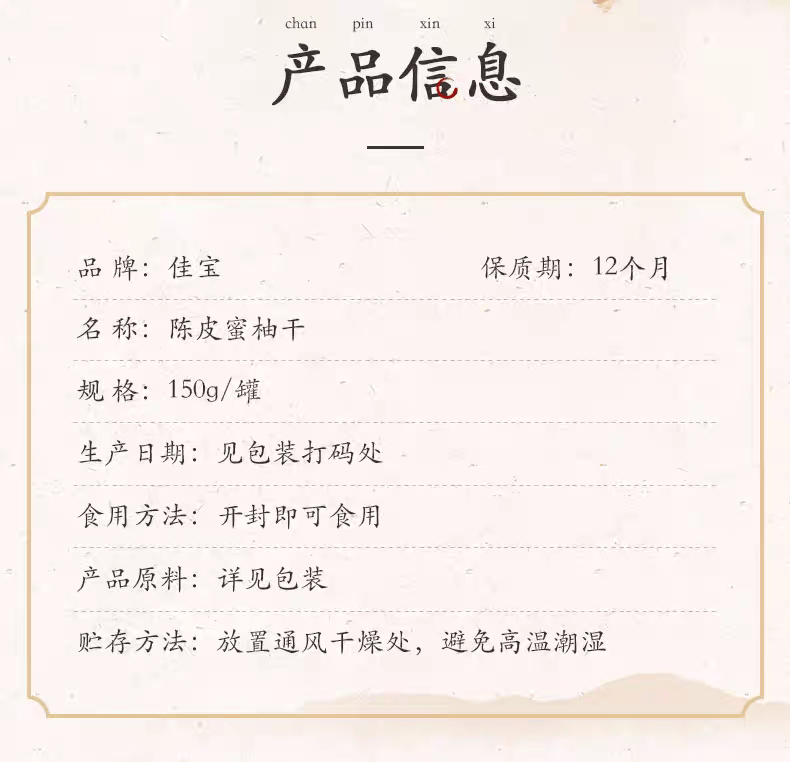 chan pin xin xi
产品信息
品牌：佳宝 保质期：12个月
名称：陈皮蜜柚干
规格：150g/罐
生产日期：见包装打码处
食用方法：开封即可食用
产品原料：详见包装
贮存方法：放置通风干燥处，避免高温潮湿